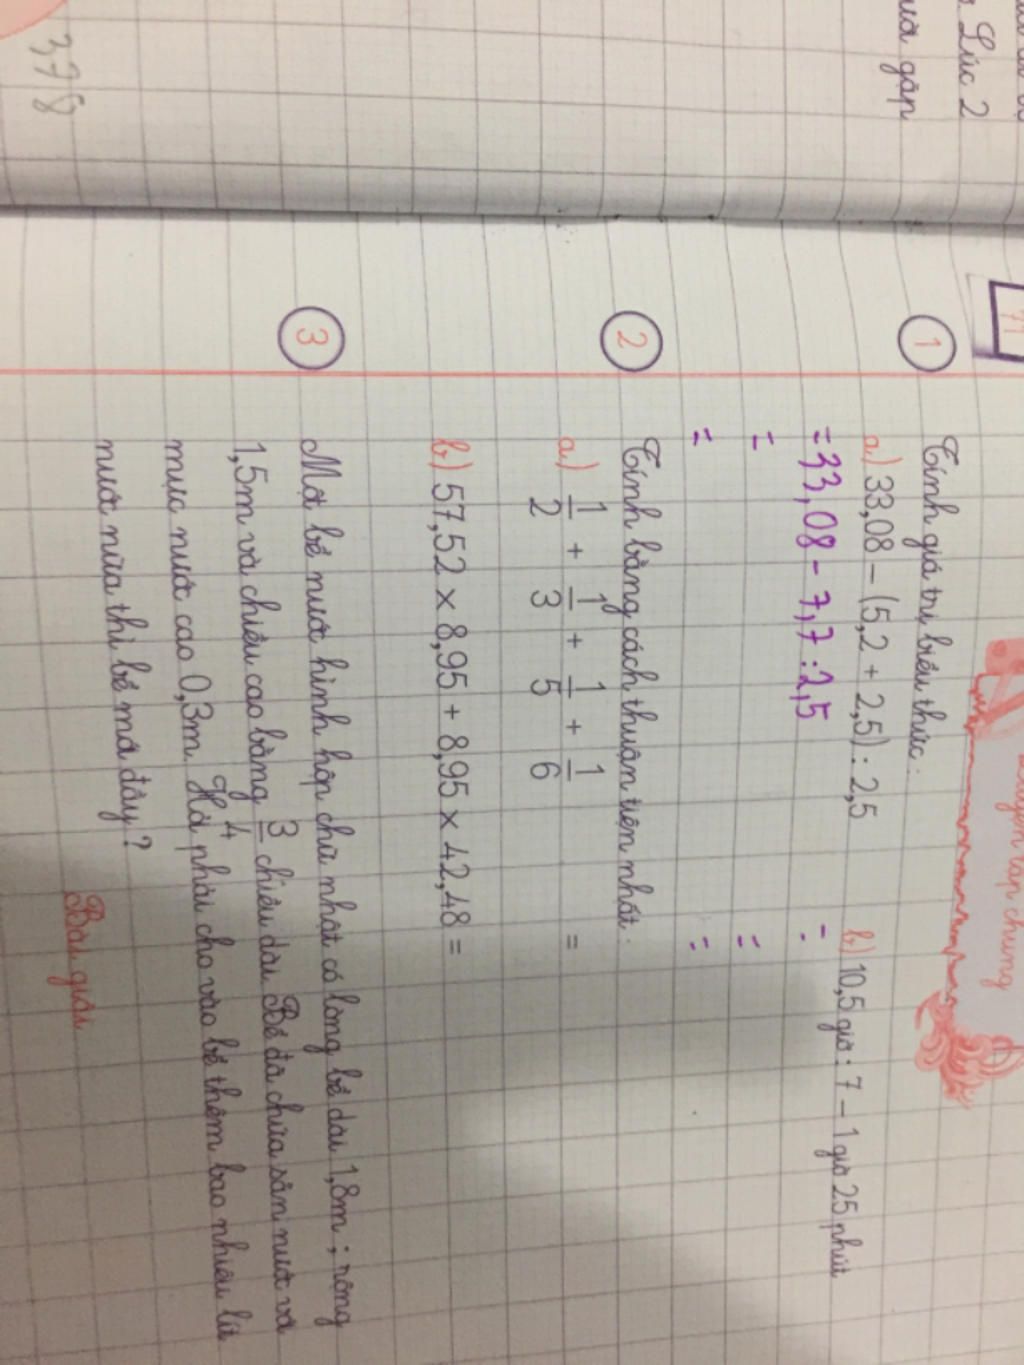 Lúc 2
gặp
378
71
tập chung
1 Tính giá trị biểu thức:
a) 33,08 - (5,2 + 2,5) : 2,5
b) 10,5 giờ : 7 - 1 giờ 25 phút
= 33,08 - 7,7 : 2,5
=
=
=
=
=
2 Tính bằng cách thuận tiện nhất:
a) 1/2 + 1/3 + 1/5 + 1/6 =
b) 57,52 × 8,95 + 8,95 × 42,48 =
3 Một bể nước hình hộp chữ nhật có lòng bể dài 1,8m ; rộng
1,5m và chiều cao bằng 3/4 chiều dài. Bể đã chứa sẵn nước và
mực nước cao 0,3m. Hỏi phải cho vào bể thêm bao nhiêu lít
nước nữa thì bể mới đầy?
Bài giải